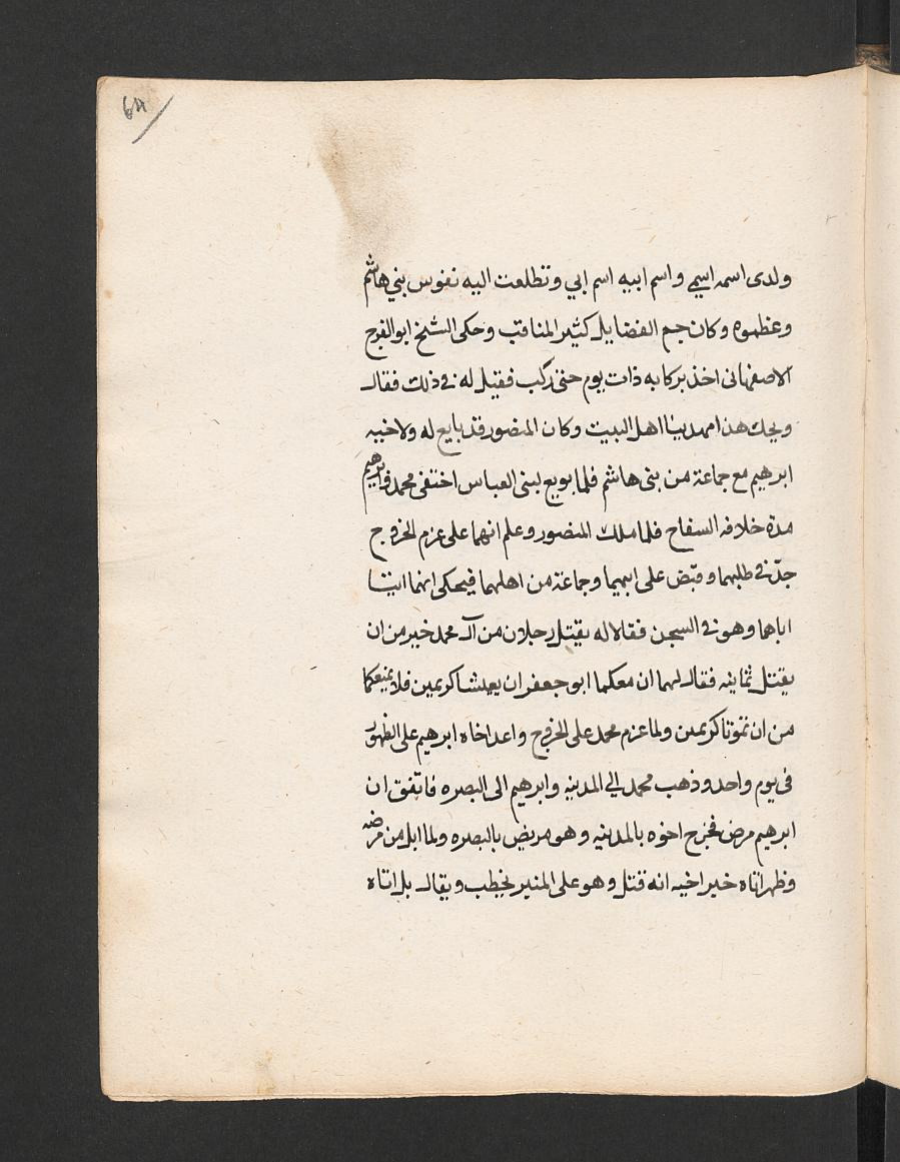 64
ولدى اسمه اسمي واسم ابيه اسم ابي وتطلعت اليه نفوس بني هاشم
وعظموه وكان جم الفضايل كثير المناقب وحكى الشيخ ابو الفرج
الاصفهاني اخذ بركابه ذات يوم حتى ركب فقيل له في ذلك فقال
ويحك هذا مهدينا اهل البيت وكان المنصور قد بايع له ولاخيه
ابرهيم مع جماعة من بني هاشم فلما بويع لبني العباس اختفى محمد وابرهيم
مدة خلافه السفاح فلما ملك المنصور وعلم انهما على عزم الخروج
جدّ في طلبهما وقبّض على ابيهما وجماعة من اهلهما فيحكى انهما اتيا
اباهما وهو في السجن فقالا له يقتل رجلان من آل محمد خير من ان
يقتل ثمانيه فقال لهما ان منعكما ابو جعفر ان يعيشا كريمين فلا يمنعكما
من ان تموتا كريمين ولما عزم محمد على الخروج واعد اخاه ابرهيم على الظهور
في يوم واحد وذهب محمد الى المدينه وابرهيم الى البصره فاتّفق ان
ابرهيم مرض فخرج اخوه بالمدينه وهو مريض بالبصره ولما ابل من مرضه
وظهر اتاه خبر اخيه انه قتل وهو على المنبر يخطب ويقال بل اتاه